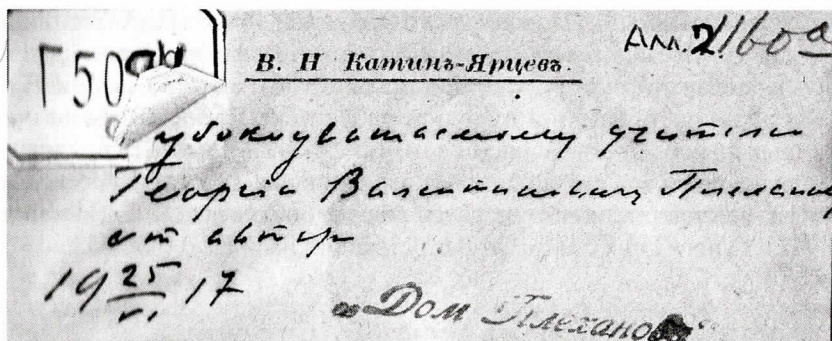 Г50
В. Н Катинъ-Ярцевъ.
убокоуважаемому учителю
Георгію Валентиновичу Плеханову
от автора
19 25/VI 17
„Дом Плеханова“